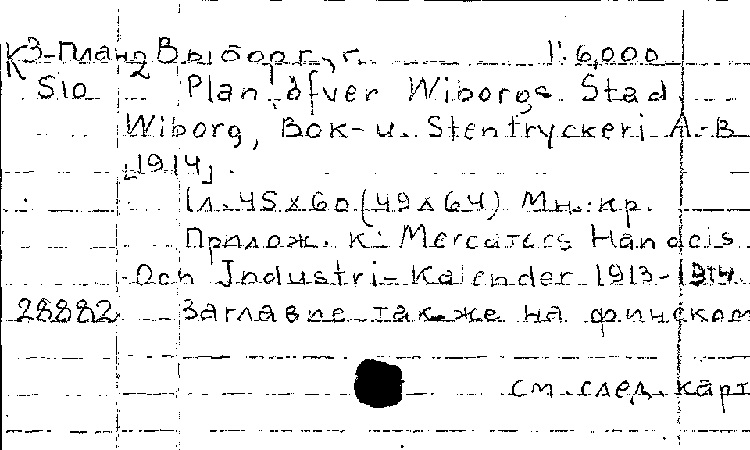 К3-План Выборг, г. 1:6,000
2
S10 Plan öfver Wiborgs Stad.
Wiborg, Bok- u. Stentryckeri A.-B
[1914].
1 л. 45x60 (49x64) Мн. кр.
Прилож. к: Mercators Handels
Och Industri-Kalender 1913-1914.
28882 Заглавие также на финском
см. след. карт